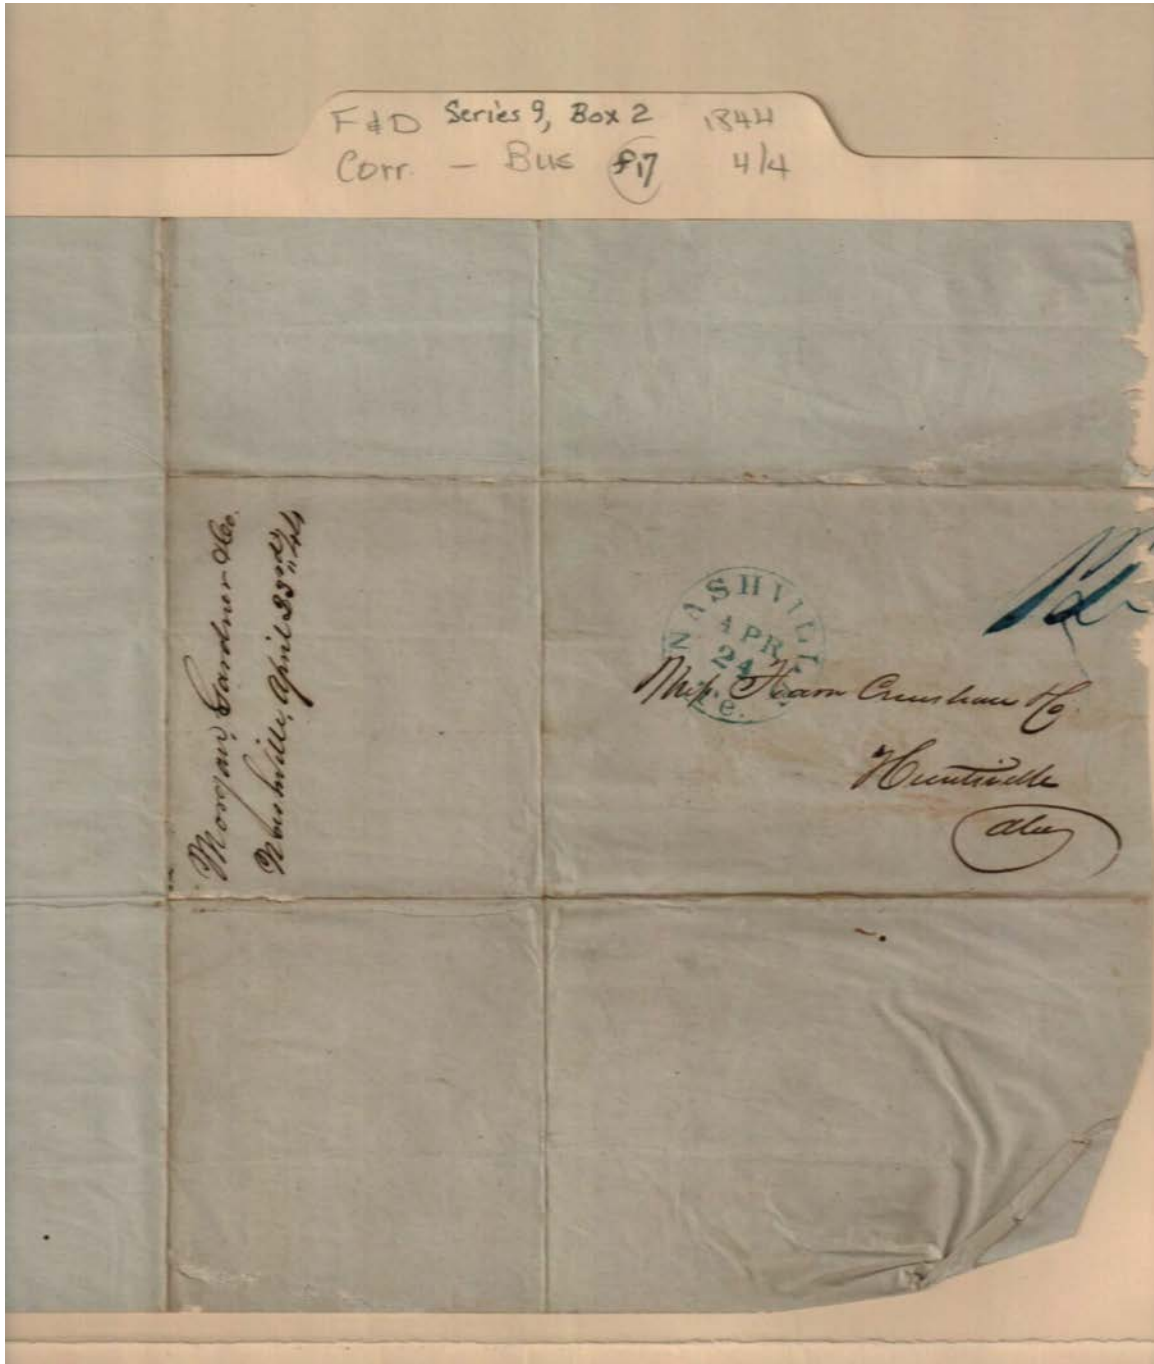 F&D Series 9, Box 2 1844
Corr. — Bus f17 4/4
Morgan, Gardner &Co.
Nashville, April 23rd, "44
NASHVILLE
APR
24
Te.
Mess. Fearn Crenshaw & Co
Huntsville
Ala